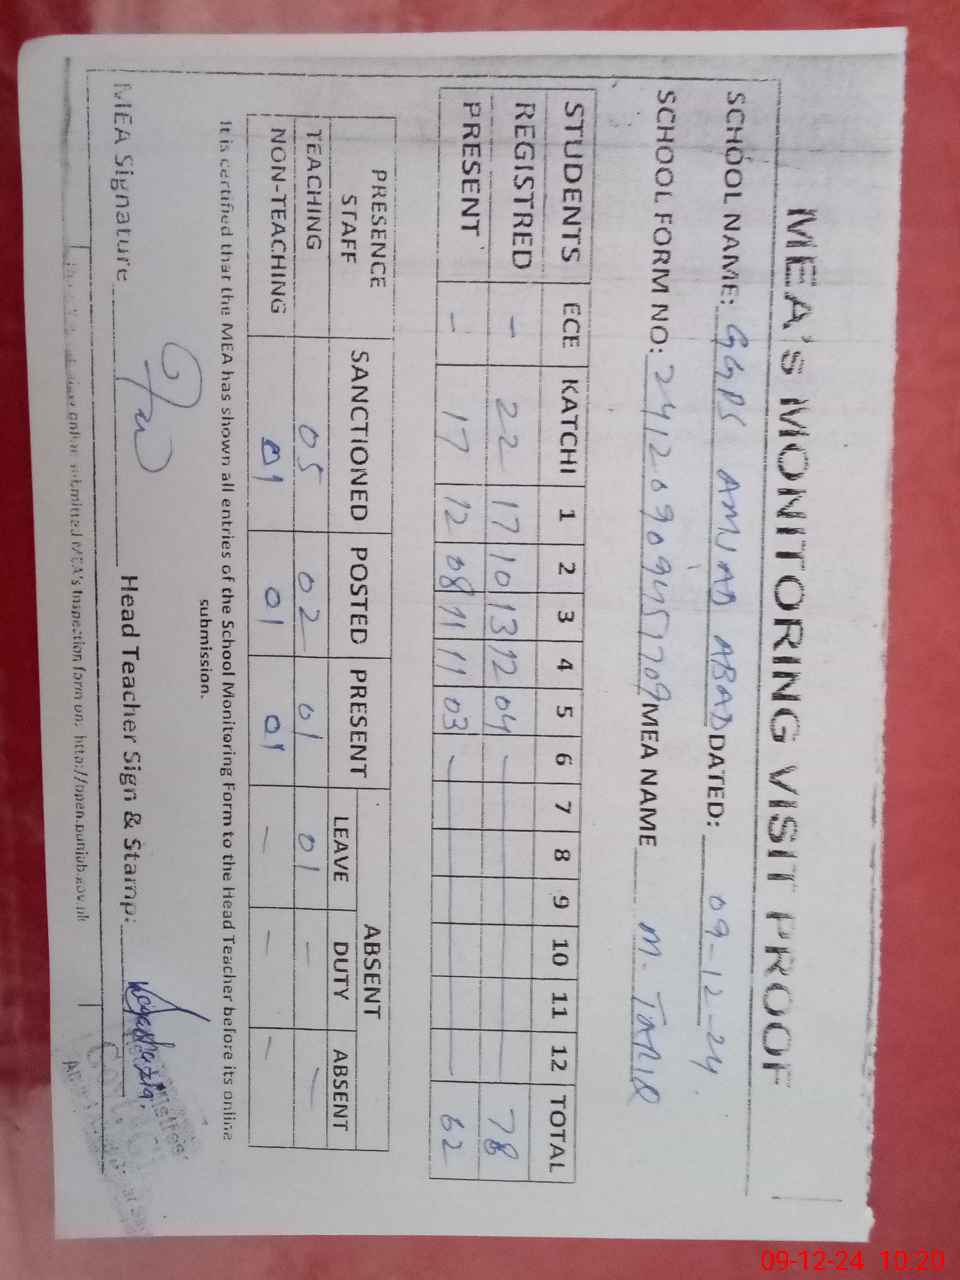 MEA'S MONITORING VISIT PROOF
SCHOOL NAME: GGPS AMJAD ABAD DATED: 09-12-24.
SCHOOL FORM NO: MEA NAME M. TARIQ
STUDENTS ECE KATCHI 1 2 3 4 5 6 7 8 9 10 11 12 TOTAL
REGISTRED - 22 17 10 13 12 04 - 78
PRESENT - 17 12 08 11 11 03 - 62
PRESENCE STAFF SANCTIONED POSTED PRESENT ABSENT
LEAVE DUTY ABSENT
TEACHING 05 02 01 01 - -
NON-TEACHING 01 01 01 - - -
It is certified that the MEA has shown all entries of the School Monitoring Form to the Head Teacher before its online
submission.
MEA Signature Head Teacher Sign & Stamp:
online submitted MEA's Inspection form on: http://open.punjab.gov.pk
09-12-24 10:20